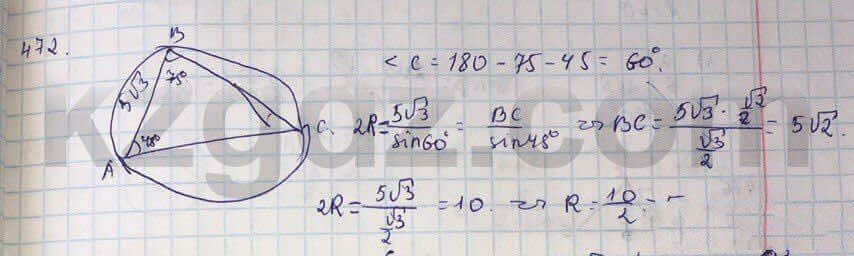 472.
B
5√3
75°
45°
A
C.
< C = 180 - 75 - 45 = 60°.
2R = 5√3 / sin60° = BC / sin45° => BC = (5√3 · √2/2) / (√3/2) = 5√2.
2R = 5√3 / (√3/2) = 10. => R = 10/2 =
kzgdz.com